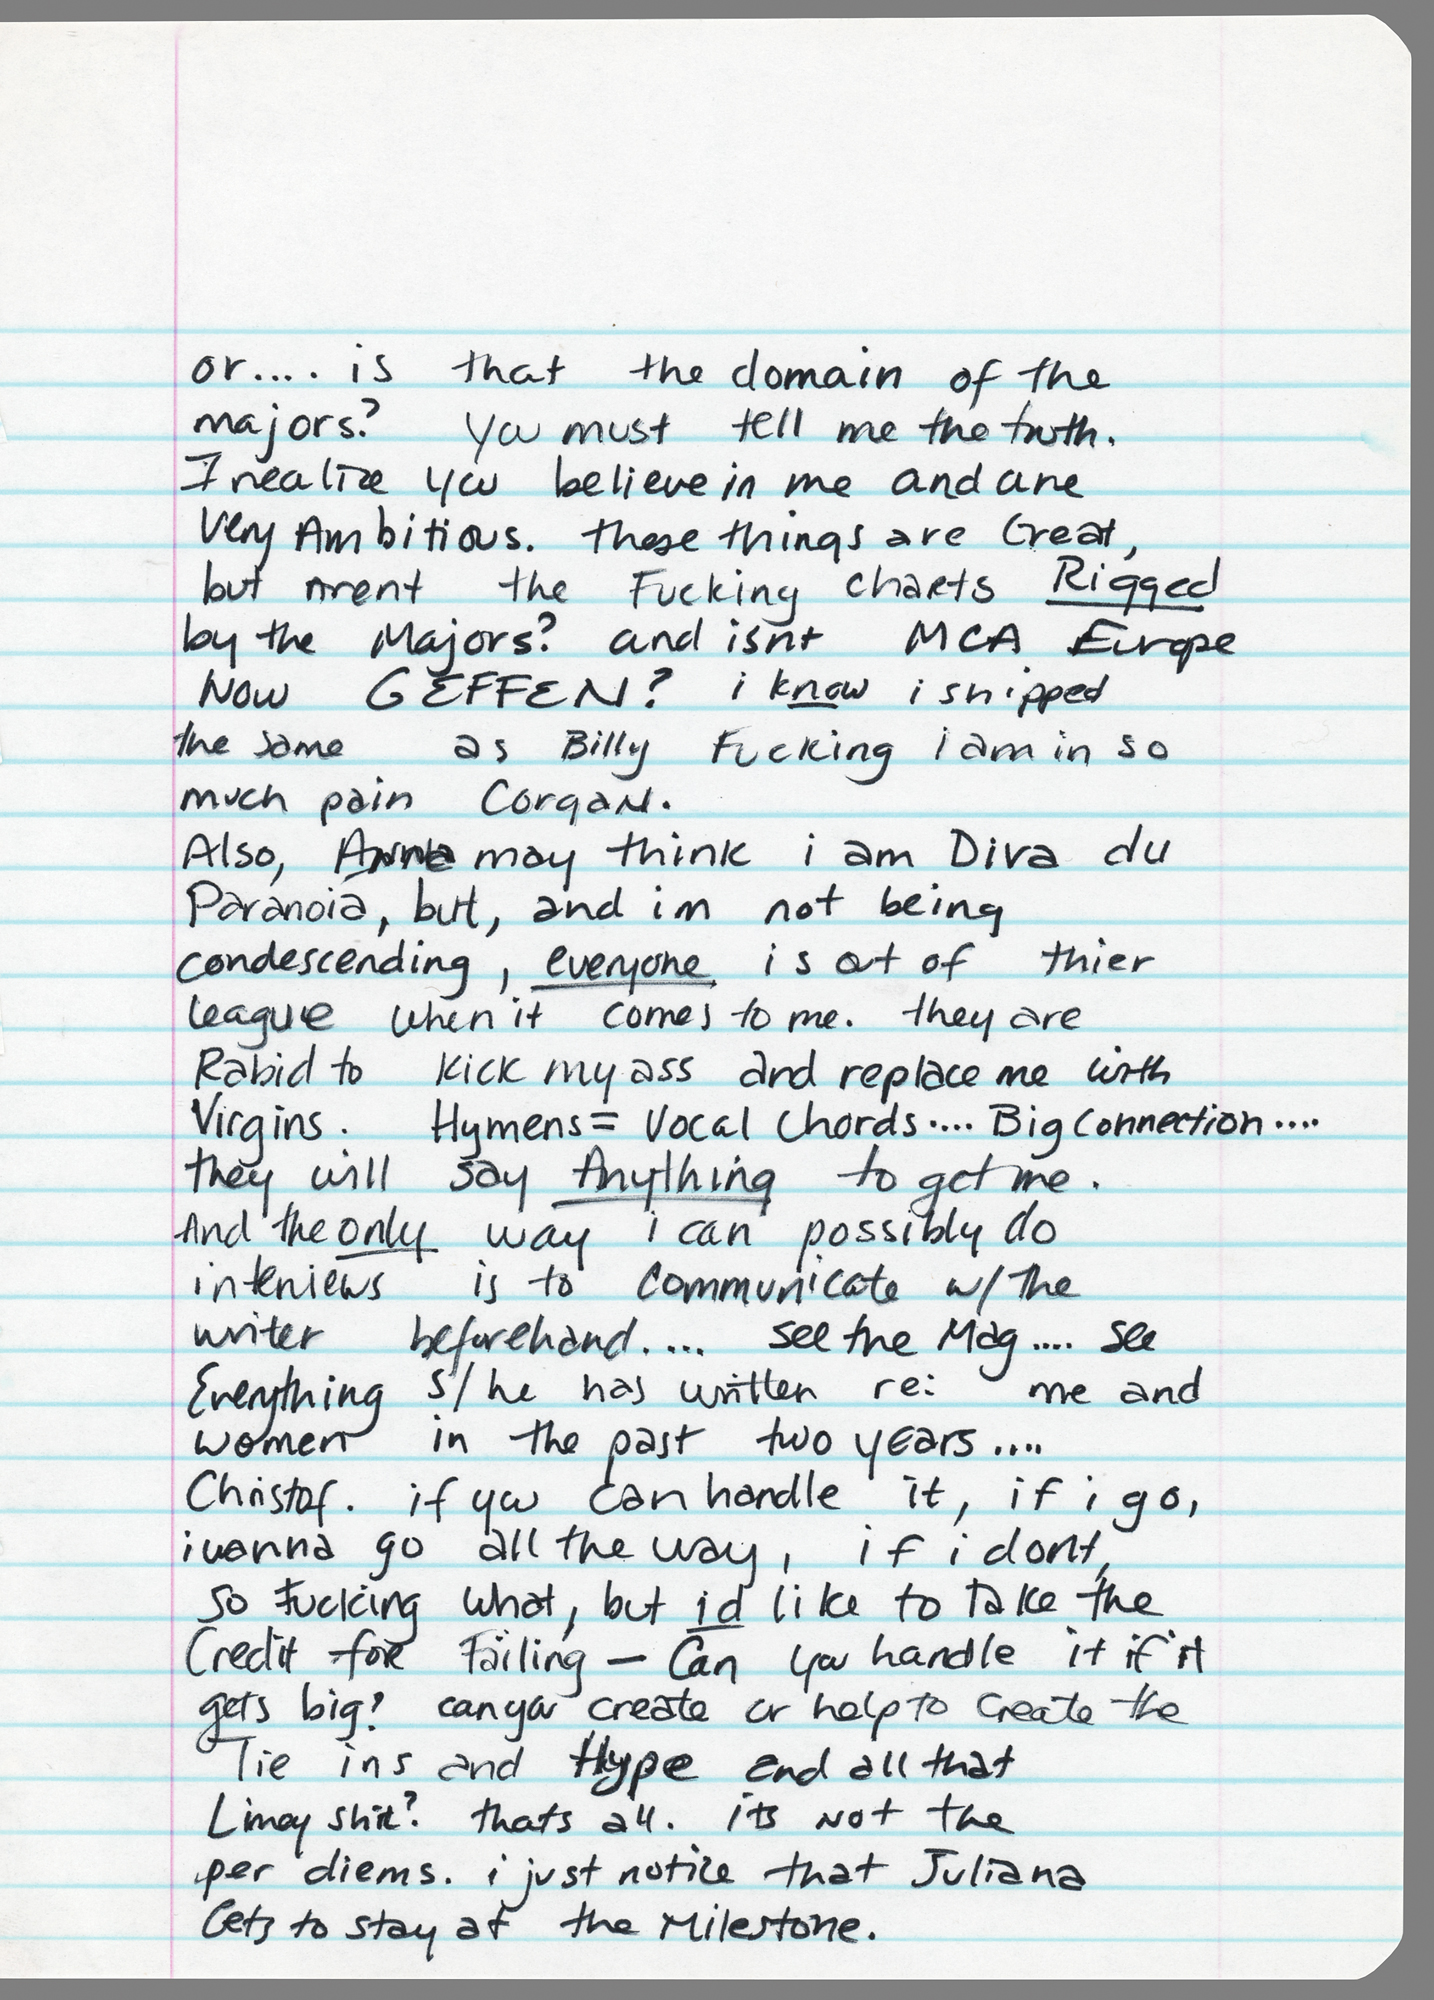 or.... is that the domain of the
majors? You must tell me the truth.
I realize you believe in me and are
Very Ambitious. these things are Great,
but Arent the Fucking charts Rigged
by the Majors? and isnt MCA Europe
Now GEFFEN? i know i shipped
the same as Billy Fucking i am in so
much pain Corgan.
Also, may think i am Diva du
Paranoia, but, and im not being
condescending, everyone is out of thier
league when it comes to me. they are
Rabid to kick my ass and replace me with
Virgins. Hymens = Vocal Chords.... Big Connection....
they will say Anything to get me.
And the only way i can possibly do
interviews is to communicate w/ the
writer beforehand.... see the Mag.... see
Everything s/he has written re: me and
women in the past two years....
Christof. if you can handle it, if i go,
i wanna go all the way, if i dont,
so Fucking what, but id like to take the
Credit for Failing — Can you handle it if it
gets big? can you create or help to create the
Tie ins and Hype and all that
Limey shit? thats all. its not the
per diems. i just notice that Juliana
Gets to stay at the Milestone.